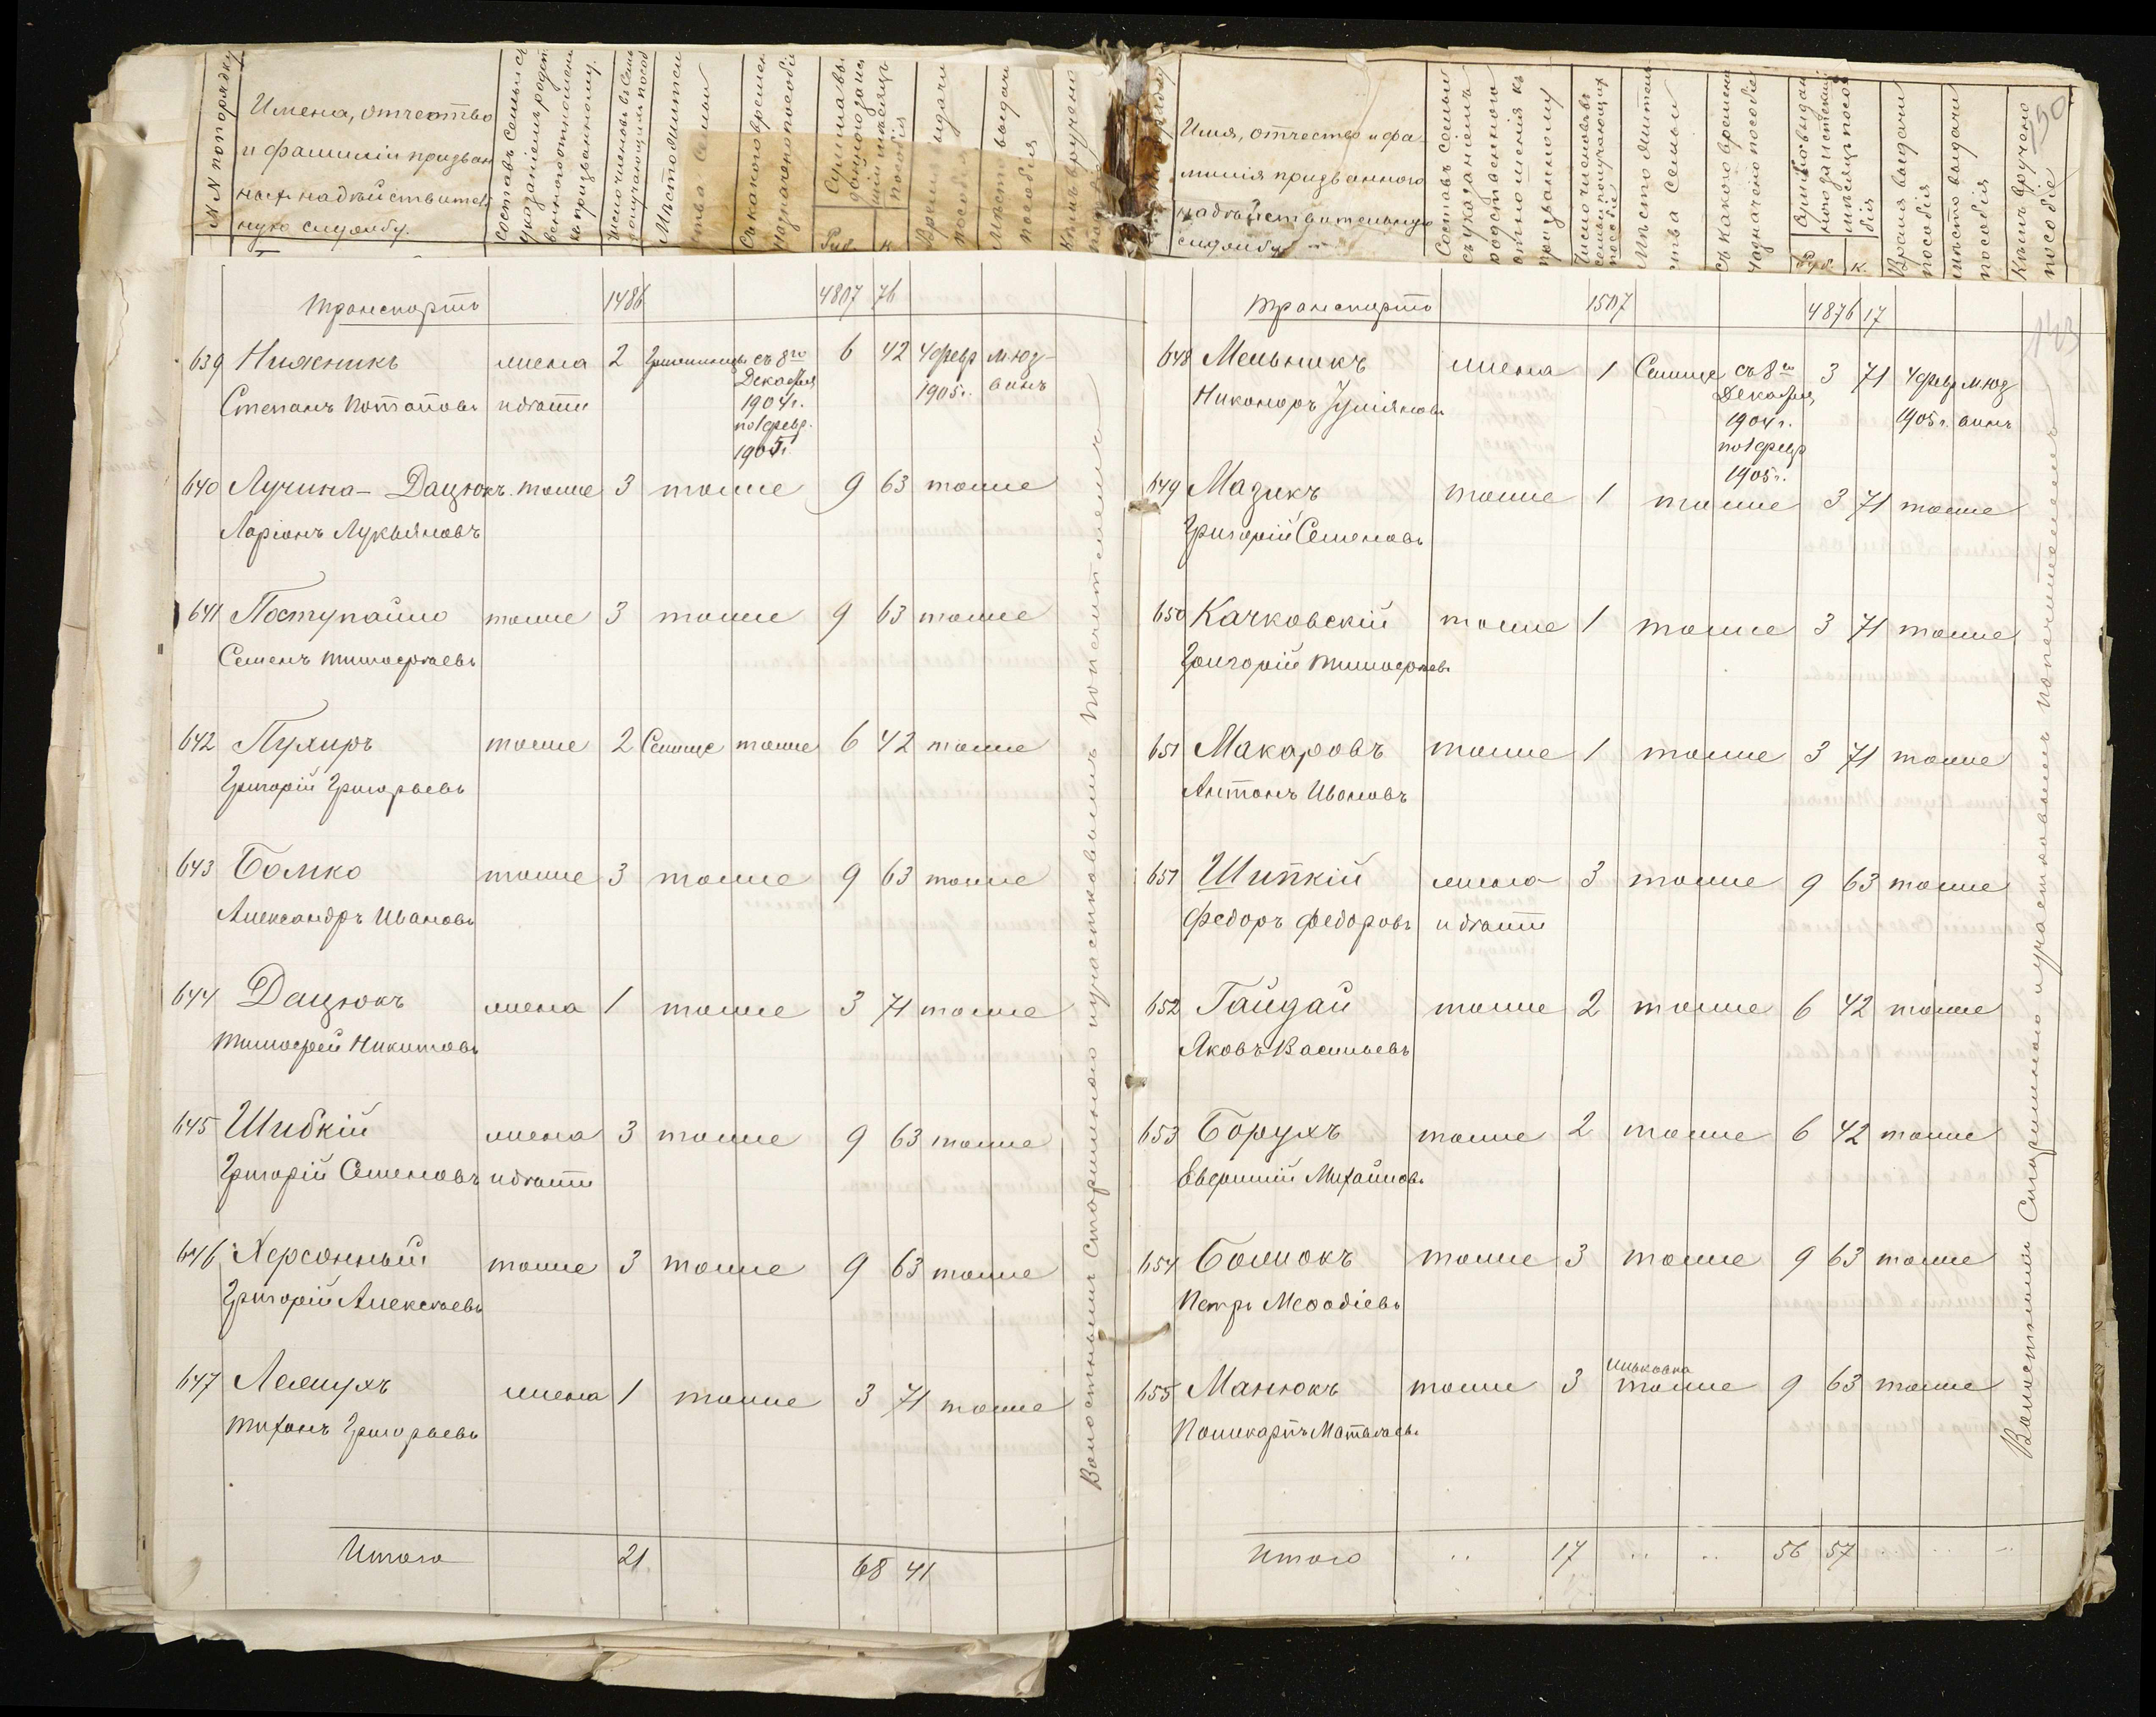 №№ по порядку
Имена, отчество
и фамиліи призван
ныхъ на дѣйствитель
ную службу.
Составъ семьи съ
указаніемъ родст
веннаго отношенія
къ призванному.
Число членовъ въ семь
получающимъ пособ
Мѣстожитель
ства семьи
Съ какого времен
назначено пособіе
Сумма вы
даннаго за истек
шій мѣсяцъ
пособія
Руб. к.
Время выдачи
пособія
Мѣсто выдачи
пособія
Кѣмъ вручено
транспортъ 1486 4807 76
639 Нижникъ жена 2 съ 8го 6 42 4 февр м. юз-
Декабря винъ
Степанъ Потаповъ и дѣти 1904 г. 1905 г.
по 1 февр.
1905 г.
640 Лучина-Дацюкъ. тоже 3 тоже 9 63 тоже
Ларіонъ Лукьяновъ
641 Поступайло тоже 3 тоже 9 63 тоже
Семенъ Тимофеевъ
642 Пухиръ тоже 2 Селище тоже 6 42 тоже
Григорій Григорьевъ
643 Бомко тоже 3 тоже 9 63 тоже
Александръ Ивановъ
644 Дацюкъ жена 1 тоже 3 71 тоже
Тимофей Никитовъ
645 Шибкій жена 3 тоже 9 63 тоже
Григорій Семеновъ и дѣти
646 Херсонный тоже 3 тоже 9 63 тоже
Григорій Алексѣевъ
647 Лемухъ жена 1 тоже 3 71 тоже
Тихонъ Григорьевъ
Итого 21 68 41
Волостнымъ Старшиною и участковымъ попечителемъ
150
Имя, отчество и фа-
милія призваннаго
на дѣйствительную
службу
Составъ семьи
съ указаніемъ
родственнаго
отношенія къ
призванному
Число членовъ въ
семьѣ получающихъ
пособіе
Мѣстожитель
ства семьи
съ какого времени
назначено пособіе
Сумма выдан
наго за истекшій
мѣсяцъ посо
бія
Руб. к.
Время выдачи
пособія
мѣсто выдачи
пособія
Кѣмъ вручено
пособіе
транспортъ 1507 4876 17
648 Мельникъ жена 1 Селище съ 8го 3 71 4 февр м. юз
Декабря
Никоноръ 1904 г. 1905 г. винъ
по 1 февр
1905 г.
649 Мазикъ тоже 1 тоже 3 71 тоже
Григорій Семеновъ
650 Качковскій тоже 1 тоже 3 71 тоже
Григорій Тимофеевъ
651 Макаровъ тоже 1 тоже 3 71 тоже
Антонъ Ивановъ
651 Шипкій жена 3 тоже 9 63 тоже
Федоръ Федоровъ и дѣти
652 Гайдай тоже 2 тоже 6 42 тоже
Яковъ Васильевъ
653 Борухъ тоже 2 тоже 6 42 тоже
Михайловъ
654 Бомокъ тоже 3 тоже 9 63 тоже
Петръ Мефодіевъ
655 Манюкъ тоже 3 тоже 9 63 тоже
Поликарпъ Матвѣевъ
Итого 17 56 57
Волостнымъ Старшиною и участковымъ попечителемъ